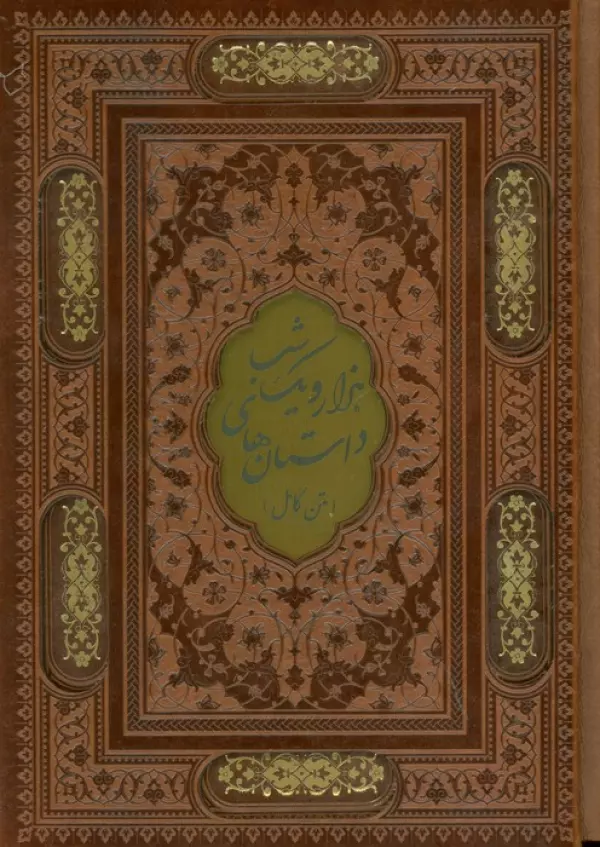 داستان‌های
هزار و یک
شب
(متن کامل)